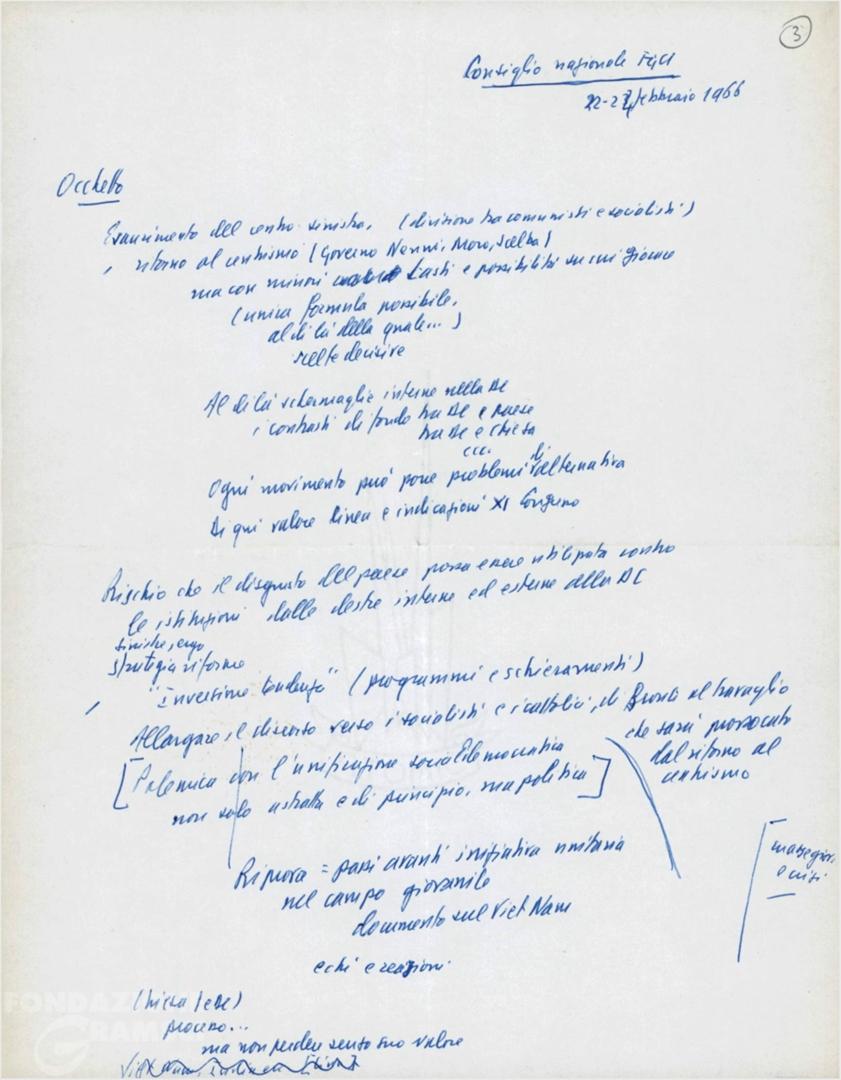 3
Consiglio nazionale FGCI
22-24 febbraio 1966
Occhetto
Esaurimento del centro-sinistra, (divisione tra comunisti e socialisti)
ritorno al centrismo (Governo Nenni, Moro, Scelba)
ma con minori basti e possibilità su cui giocare
(unica formula possibile,
al di là della quale...)
scelte decisive
Al di là schermaglie interne nella DC
i contrasti di fondo tra DC e paese
tra DC e Chiesa
Ogni movimento può pone problemi di alternativa
Di qui valore linea e indicazioni XI Congresso
Rischio che il disgusto del paese possa essere utilizzata contro
le istituzioni dalle destre interne ed esterne della DC
sinistre, ergo
strategia riforme
"Inversione tendenza" (programmi e schieramenti)
Allargare il discorso verso i socialisti e i cattolici, di fronte al travaglio
che sarà provocato
dal ritorno al
centrismo
[Polemica con l'unificazione socialdemocratica
non solo astratta e di principio, ma politica]
Riprova = passi avanti iniziativa unitaria
nel campo giovanile
documento sul Viet Nam
echi e reazioni
masse giov.
e crisi
(Chiesa
processo...
ma non perdere senso suo valore
FONDAZIONE
GRAMSCI